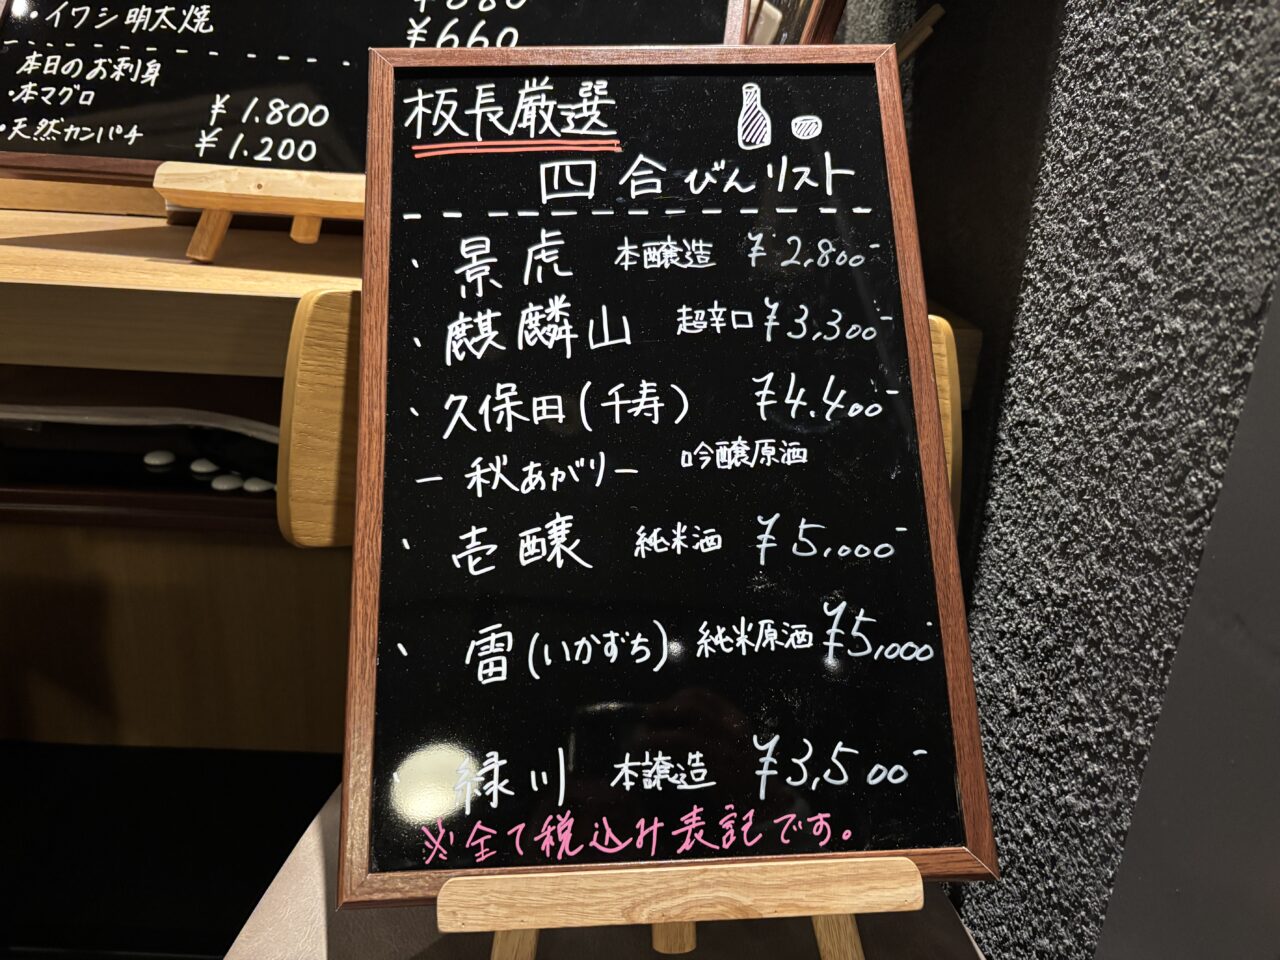 ・イワシ明太焼
¥660
本日のお刺身
・本マグロ ¥1.800
・天然カンパチ ¥1.200
板長厳選
四合びんリスト
・景虎 本醸造 ¥2,800-
・麒麟山 超辛口 ¥3,300-
・久保田(千寿) ¥4.400-
ー秋あがりー 吟醸原酒
・壱醸 純米酒 ¥5,000-
・雷(いかずち) 純米原酒 ¥5,000-
・緑川 本譲造 ¥3,500-
※全て税込み表記です。